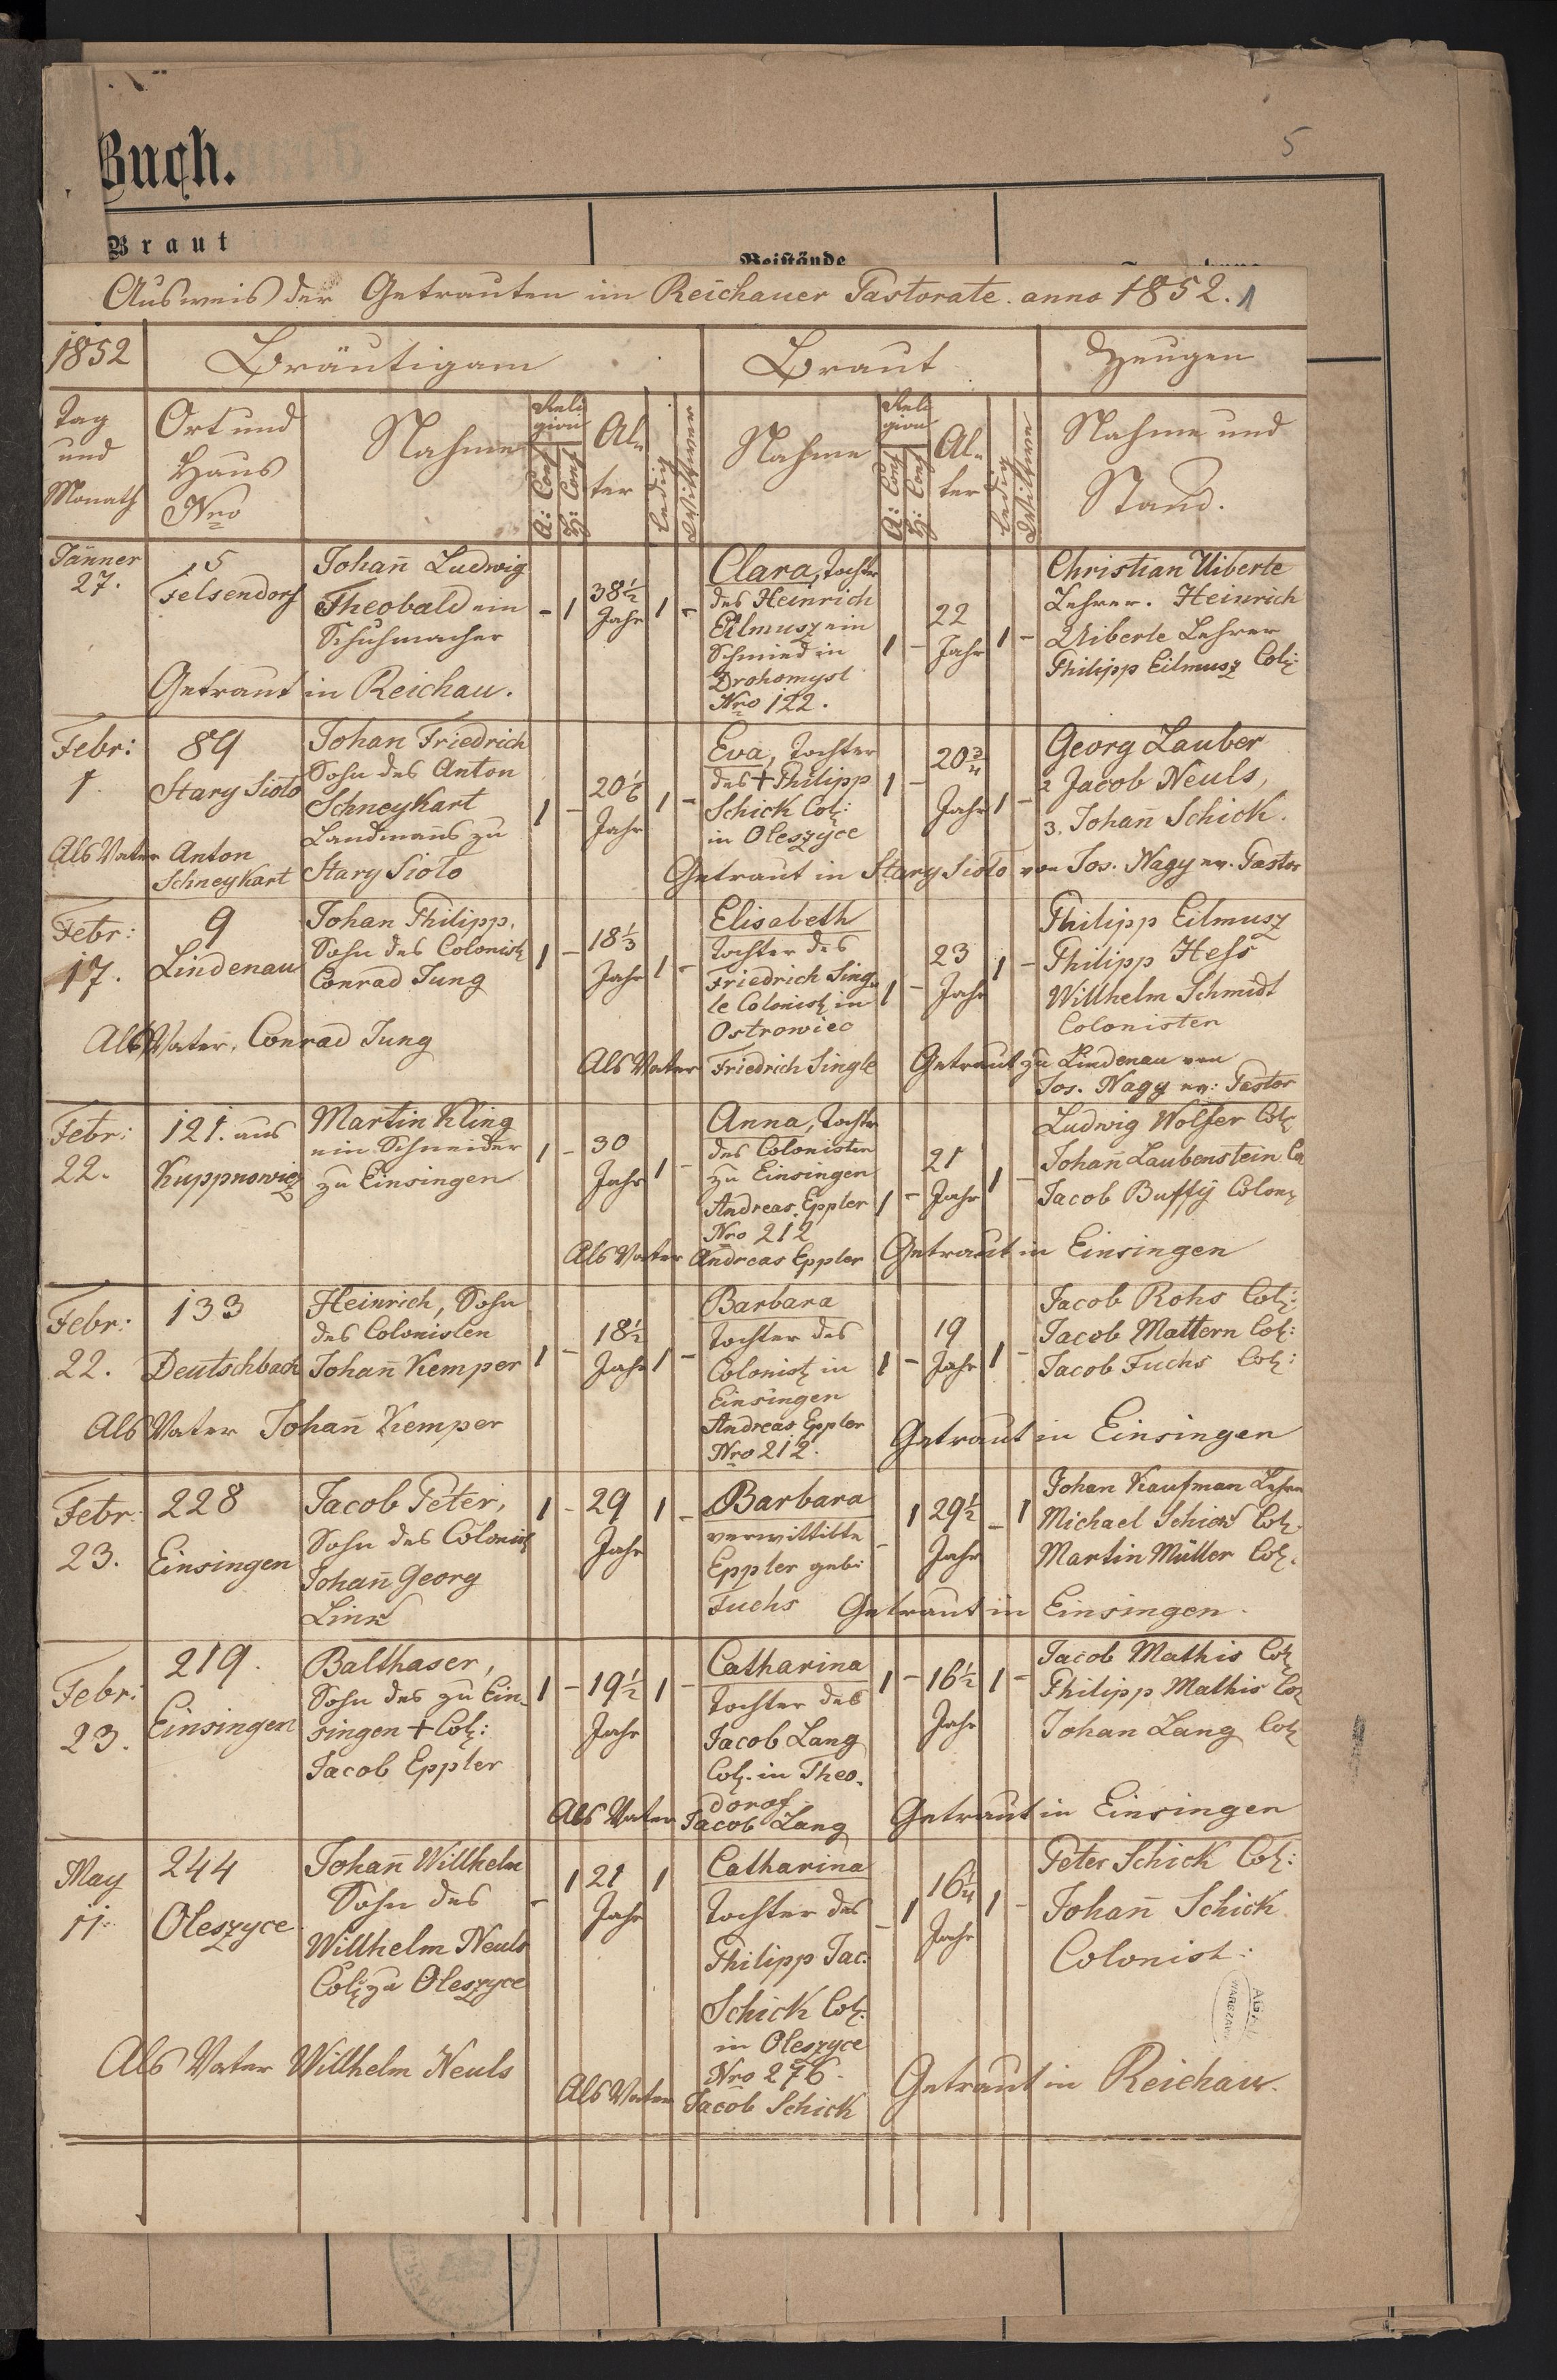 Buch.
5
Braut
Beistände
Ausweis der Getrauten im Reichauer Pastorate. anno 1852. 1
1852 Bräutigam Braut Zeugen
Tag und Monath
Ort und Haus Nro
Nahme
Religion
A: Conf
H: Conf
Alter
Ledig
Wittwer
Nahme
Religion
A: Conf
H: Conf
Alter
Ledig
Wittwe
Nahme und Stand.
Jänner 27.
5
Felsendorf
Johan̄ Ludwig
Theobald ein
Schuhmacher
- 1
38½
Jahr
1 -
Clara, Tochter
des Heinrich
Eilmusz ein
Schmied in
Drohomysl
Nro 122.
1 -
22
Jahr
1 -
Christian Uiberle
Lehrer. Heinrich
Uiberle Lehrer
Philipp Eilmusz Col:
Getraut in Reichau.
Febr:
1.
89
Stary Sioto
Johan Friedrich
Sohn des Anton
Schneykart
Landmans zu
Stary Sioto
1 -
20 1/6
Jahr
1 -
Eva, Tochter
des + Philipp
Schick Col:
in Oleszyce
1 -
20¾
Jahr
1 -
Georg Lauber
2 Jacob Neuls,
3. Johan̄ Schick.
Als Vater Anton
Schneykart
Getraut in Stary Sioto von Jos. Nagy ev. Pastor
Febr:
17.
9
Lindenau
Johan Philipp,
Sohn des Colonist
Conrad Jung
1 -
18⅓
Jahr
1 -
Elisabeth
Tochter des
Friedrich Sing-
le Colonist in
Ostrowiec
1 -
23
Jahr
1 -
Philipp Eilmusz
Philipp Hess
Willhelm Schmidt
Colonisten
Als Vater, Conrad Jung
Als Vater Friedrich Single
Getraut zu Lindenau von
Jos. Nagy ev: Pastor
Febr:
22.
121. aus
Kuppnowicz
Martin Kling
ein Schneider
zu Einsingen
1 -
30
Jahr
1 -
Anna, Tochter
des Colonisten
zu Einsingen
Andreas Eppler
Nro 212
1 -
21
Jahr
1 -
Ludwig Wolfer Col:
Johan̄ Laubenstein Co
Jacob Buffÿ Colon:
Als Vater Andreas Eppler
Getraut in Einsingen
Febr:
22.
133
Deutschbach
Heinrich, Sohn
des Colonisten
Johan̄ Kemper
1 -
18½
Jahr
1 -
Barbara
Tochter des
Colonist in
Einsingen
Andreas Eppler
Nro 212.
1 -
19
Jahr
1 -
Jacob Rohs Col:
Jacob Mattern Col:
Jacob Fuchs Col:
Als Vater Johan̄ Kemper
Getraut in Einsingen
Febr:
23.
228
Einsingen
Jacob Peter,
Sohn des Colonist
Johan̄ Georg
Link
1 -
29
Jahr
1 -
Barbara
verwittibte
Eppler geb:
Fuchs
- 1
29½
Jahr
- 1
Johan Kaufman Lehrer
Michael Schick Col.
Martin Müller Col.
Getraut in Einsingen.
Febr:
23.
219.
Einsingen
Balthaser,
Sohn des zu Ein-
singen + Col:
Jacob Eppler
1 -
19½
Jahr
1 -
Catharina
Tochter des
Jacob Lang
Col. in Theo-
dorof
1 -
16½
Jahr
1 -
Jacob Mathis Col
Philipp Mathis Col
Johan Lang Col
Als Vater Jacob Lang
Getraut in Einsingen
May
11.
244
Oleszyce
Johan̄ Willhelm
Sohn des
Willhelm Neuls
Col: zu Oleszyce
- 1
21
Jahr
1
Catharina
Tochter des
Philipp Jac.
Schick Col:
in Oleszyce
Nro 276.
- 1
16¼
Jahr
1 -
Peter Schick Col:
Johan̄ Schick
Colonist:
Als Vater Willhelm Neuls
Als Vater Jacob Schick
Getraut in Reichau.